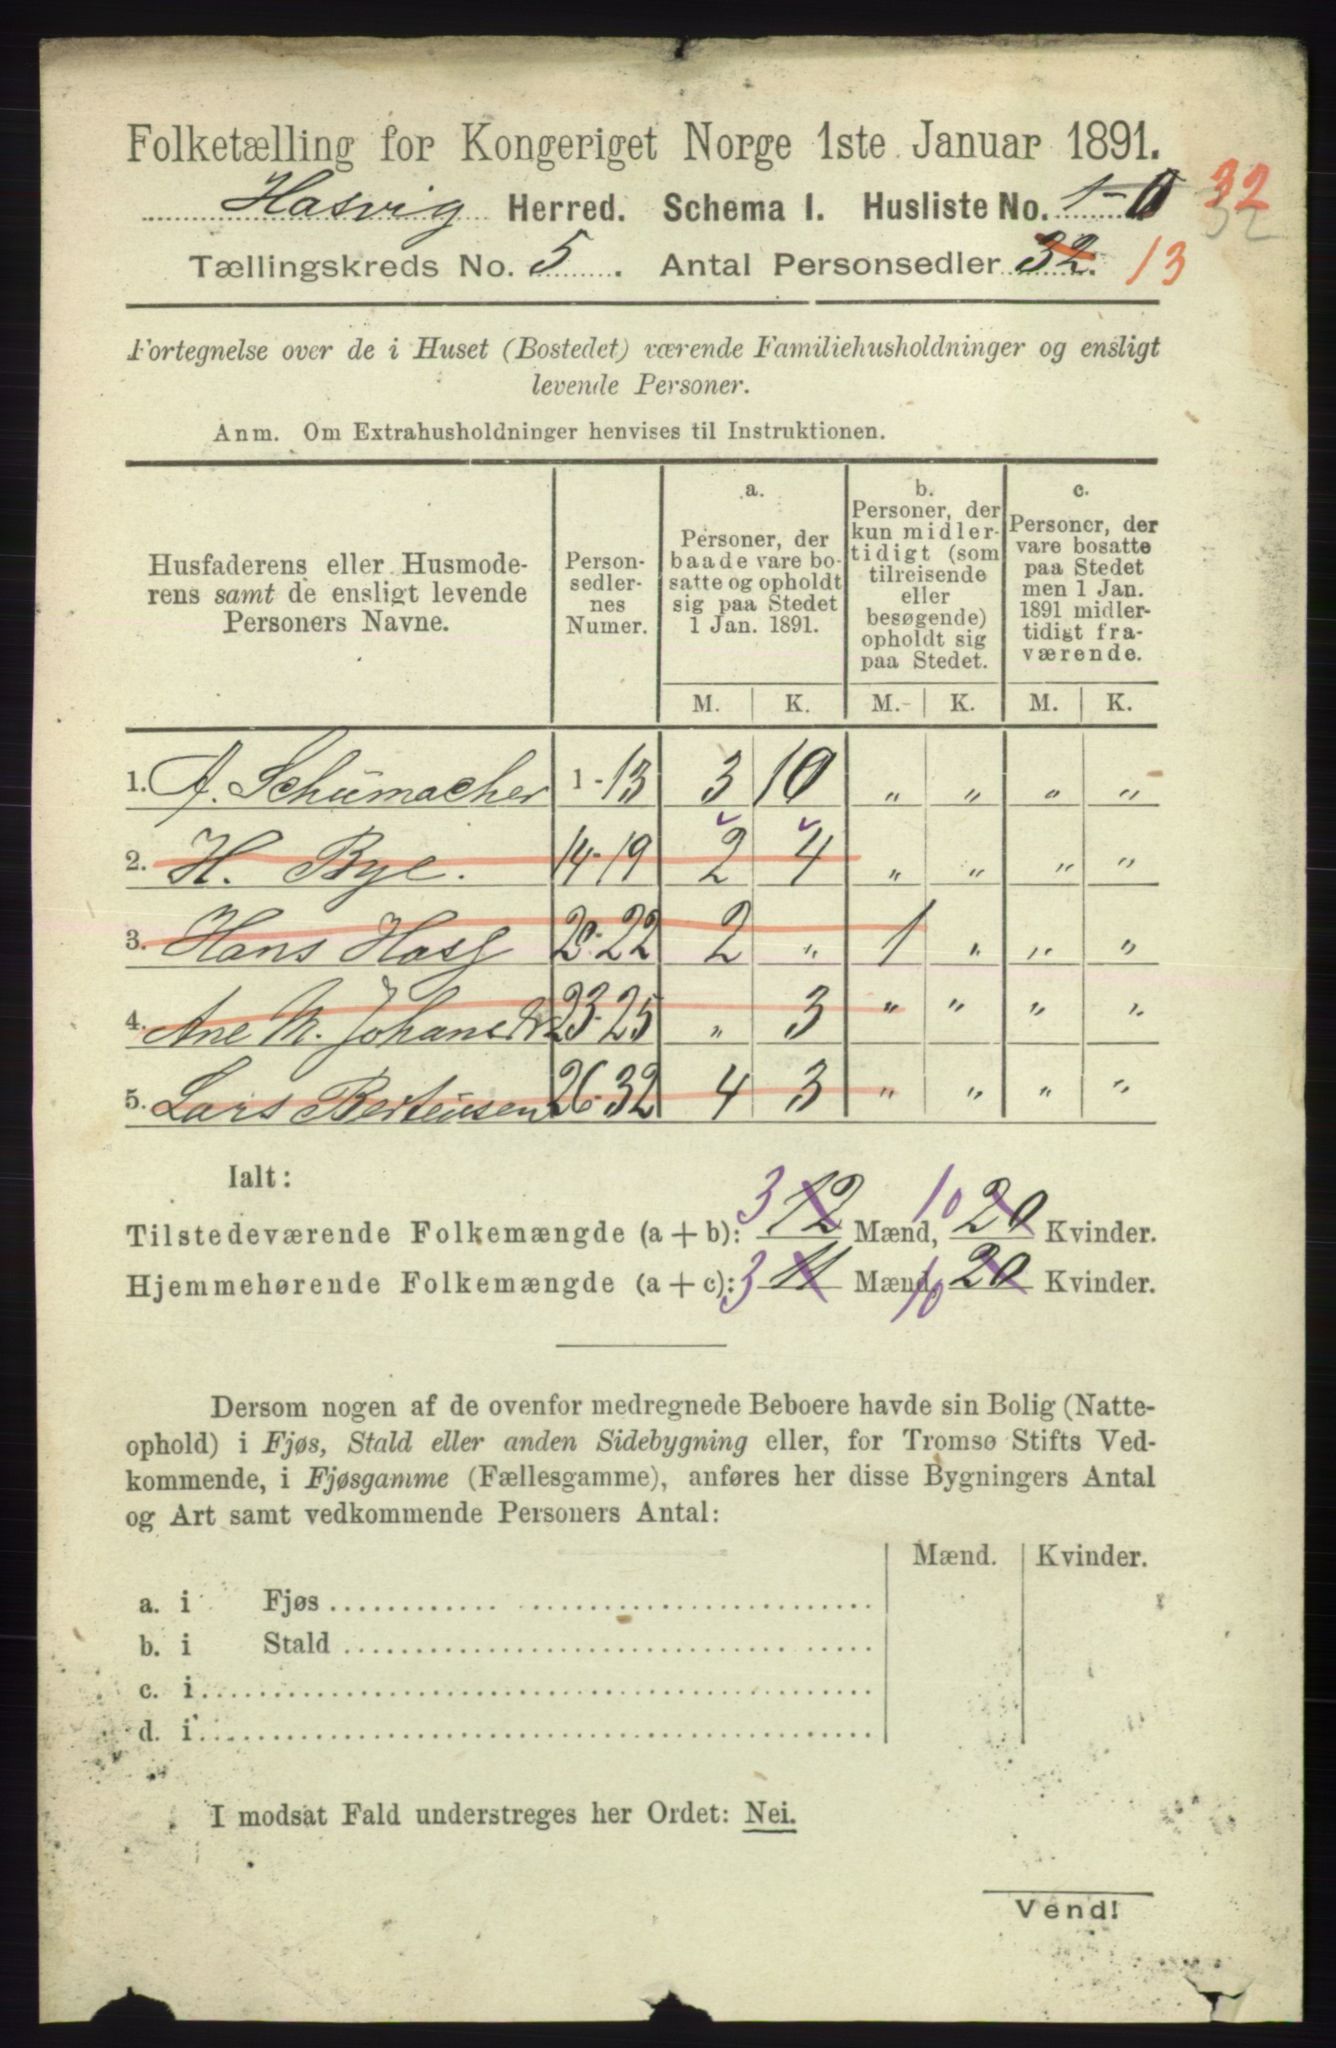 Folketælling for Kongeriget Norge 1ste Januar 1891.
Hasvig Herred. Schema I. Husliste No. 1 32
32
Tællingskreds No. 5. Antal Personsedler 32. 13
Fortegnelse over de i Huset (Bostedet) værende Familiehusholdninger og ensligt
levende Personer.
Anm. Om Extrahusholdninger henvises til Instruktionen.
Husfaderens eller Husmode-
rens samt de ensligt levende
Personers Navne.
Person-
sedler-
nes
Numer.
a.
Personer, der
baade vare bo-
satte og opholdt
sig paa Stedet
1 Jan. 1891.
b.
Personer, der
kun midler-
tidigt (som
tilreisende
eller
besøgende)
opholdt sig
paa Stedet.
c.
Personer, der
vare bosatte
paa Stedet
men 1 Jan.
1891 midler-
tidigt fra-
værende.
M. K. M. K. M. K.
1. A. Schümacher 1-13 3 10 „ „ „ „
2. H. Bye. 14-19 2 4 „ „ „ „
3. Hans Hasf 20-22 2 „ 1 „ „ „
4. Ane M. Johansdr 23-25 „ 3 „ „ „ „
5. Lars Berteusen 26-32 4 3 „ „ „ „
Ialt:
Tilstedeværende Folkemængde (a + b): 3 12 Mænd, 10 20 Kvinder.
Hjemmehørende Folkemængde (a + c): 3 11 Mænd, 10 20 Kvinder.
Dersom nogen af de ovenfor medregnede Beboere havde sin Bolig (Natte-
ophold) i Fjøs, Stald eller anden Sidebygning eller, for Tromsø Stifts Ved-
kommende, i Fjøsgamme (Fællesgamme), anføres her disse Bygningers Antal
og Art samt vedkommende Personers Antal:
Mænd. Kvinder.
a. i Fjøs
b. i Stald
c. i
d. i
I modsat Fald understreges her Ordet: Nei.
Vend!